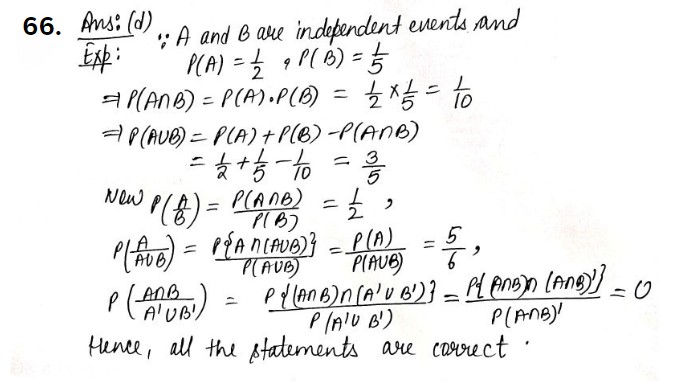 66. Ans: (d) ∵ A and B are independent events and
Exp: P(A) = 1/2 , P(B) = 1/5
⇒ P(A∩B) = P(A).P(B) = 1/2 × 1/5 = 1/10
⇒ P(A∪B) = P(A) + P(B) - P(A∩B)
= 1/2 + 1/5 - 1/10 = 3/5
New P(A/B) = P(A∩B)/P(B) = 1/2 ,
P(A/A∪B) = P{A∩(A∪B)}/P(A∪B) = P(A)/P(A∪B) = 5/6 ,
P(A∩B/A'∪B') = P{(A∩B)∩(A'∪B')}/P(A'∪B') = P{(A∩B)∩(A∩B)'}/P(A∩B)' = 0
Hence, all the statements are correct.